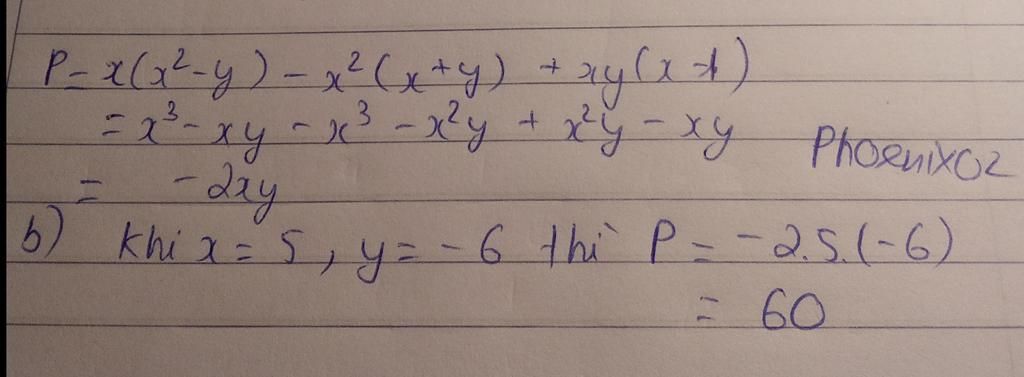 P = x(x²-y) - x²(x+y) + xy(x-1)
= x³ - xy - x³ - x²y + x²y - xy
= -2xy
Phoenix02
b) Khi x = 5, y = -6 thì P = -2.5.(-6)
= 60